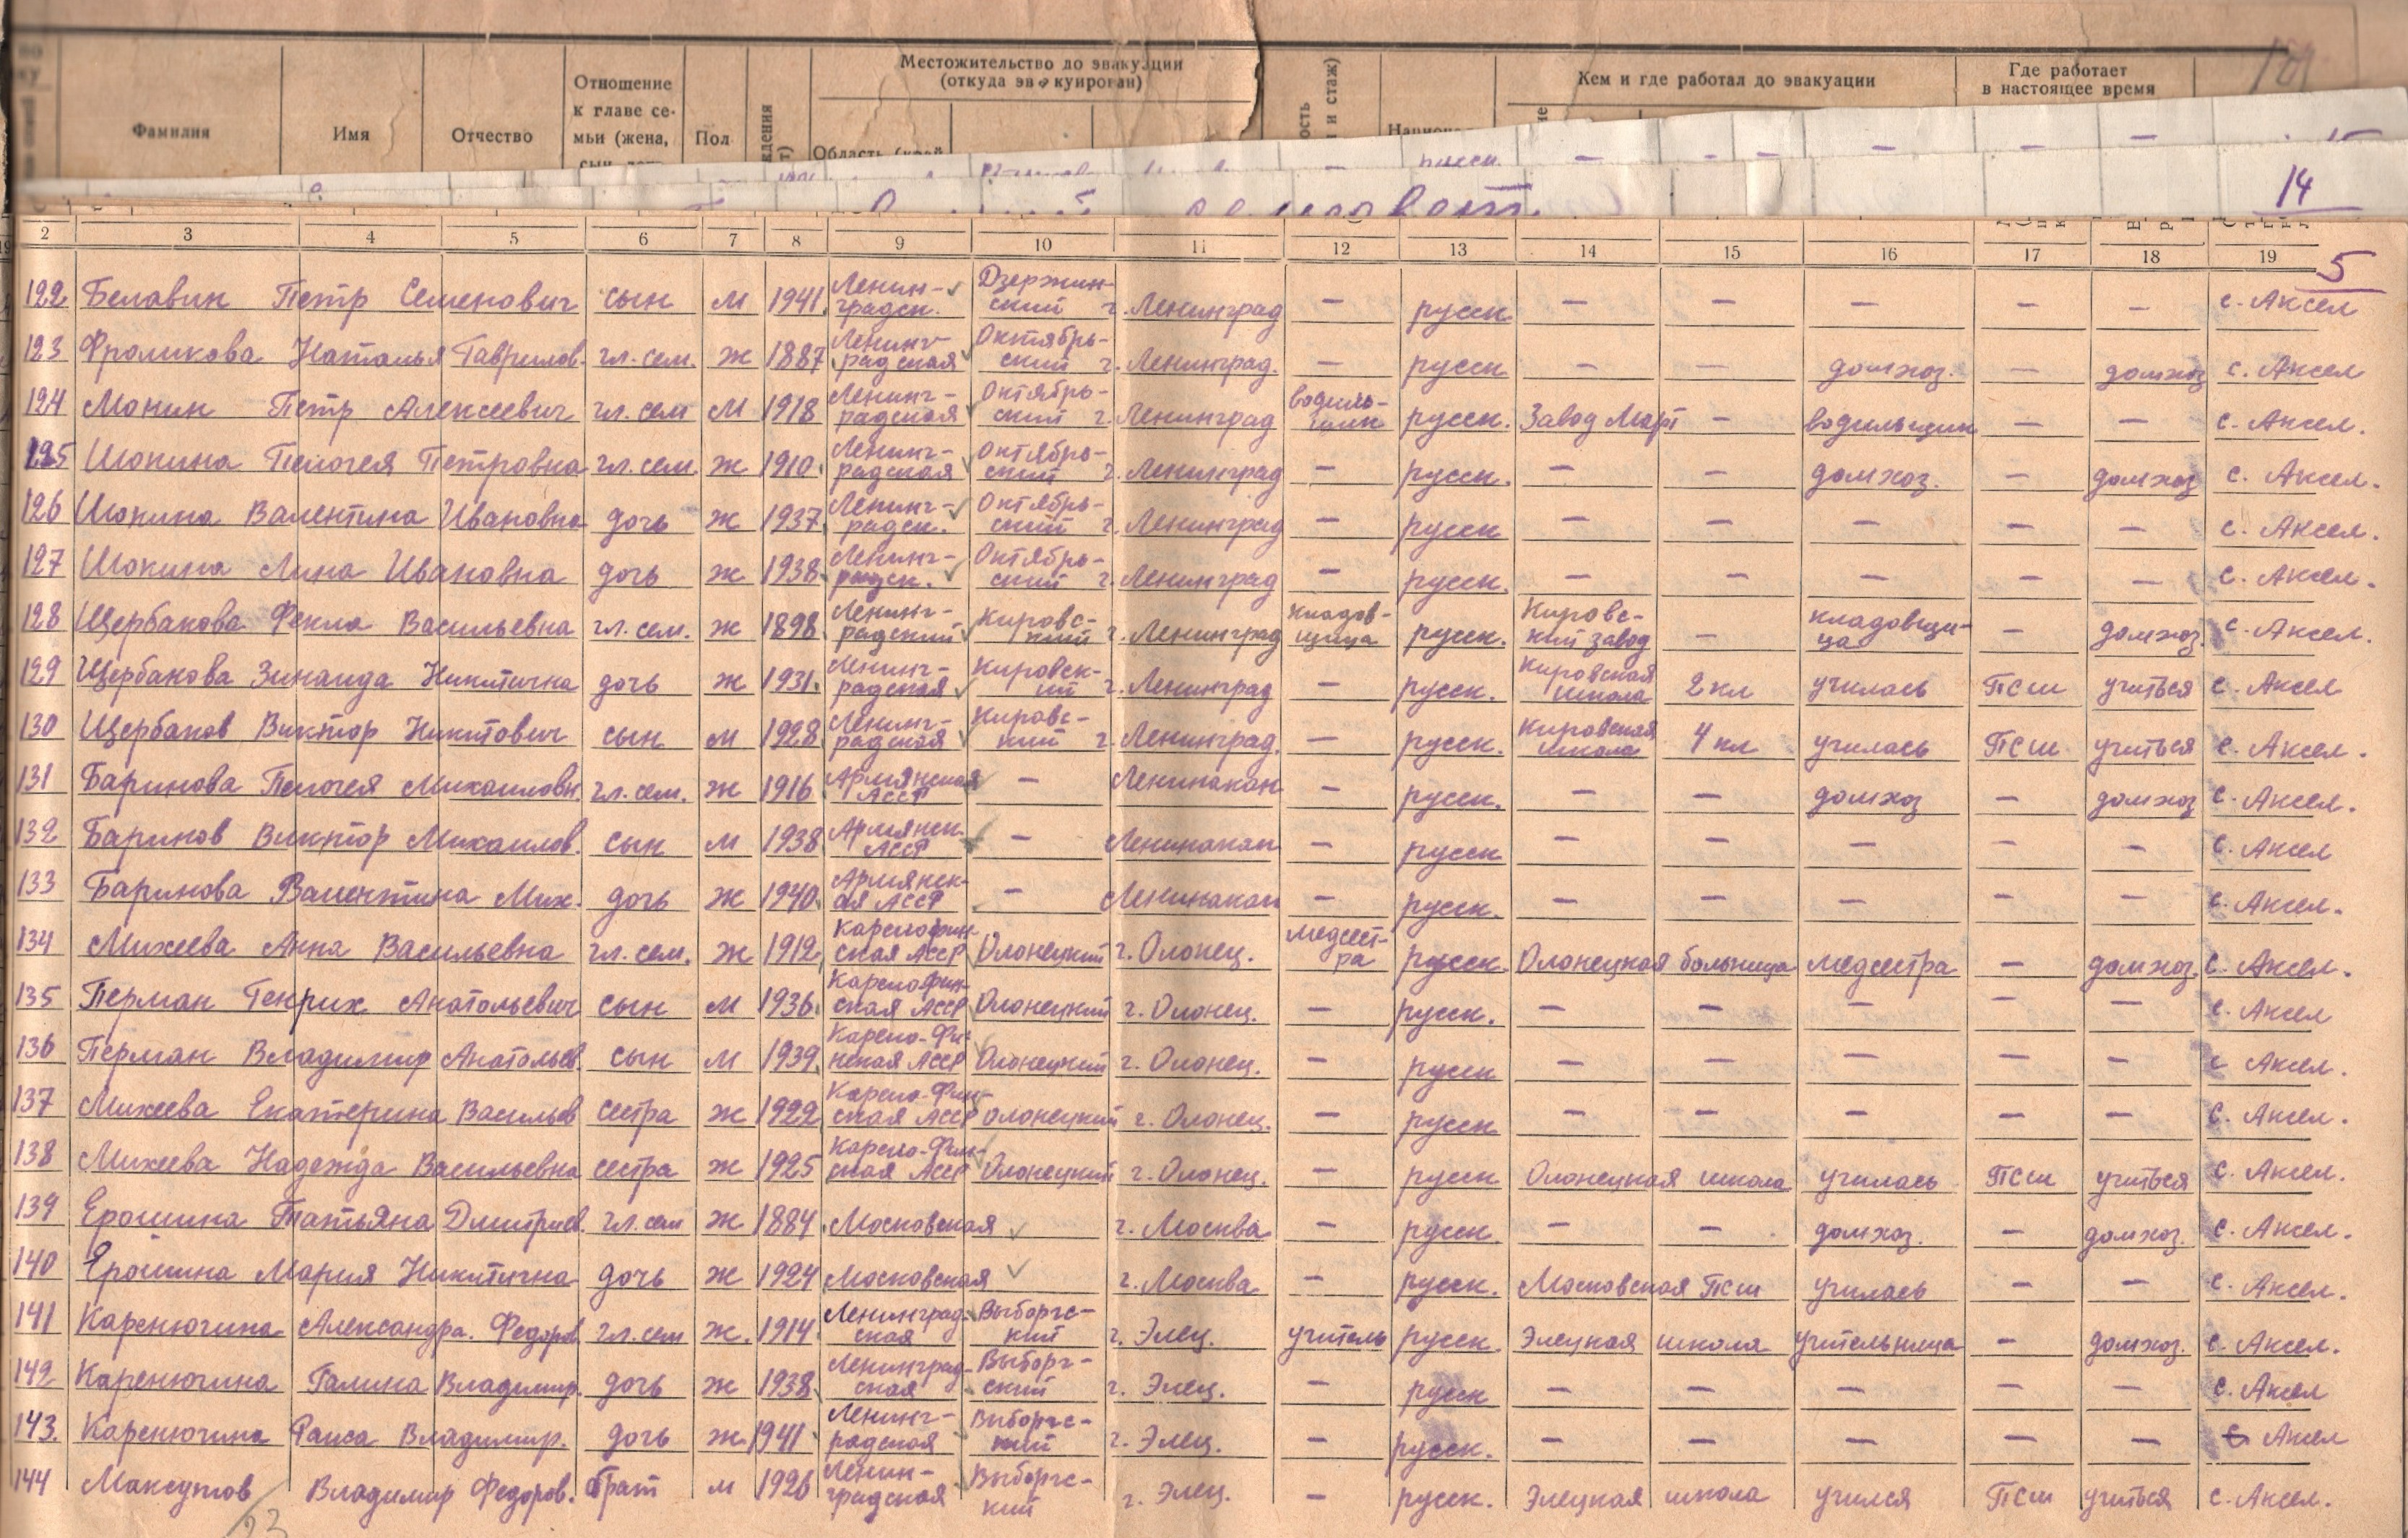 Местожительство до эвакуации
(откуда эвакуирован)
Кем и где работал до эвакуации
Где работает
в настоящее время
Фамилия Имя Отчество
Отношение
к главе се-
мьи (жена,
Пол
русск.
14
2 3 4 5 6 7 8 9 10 11 12 13 14 15 16 17 18 19
5
122 Белавин Петр Семенович сын м 1941 Ленин-градск. Дзержин-ский г. Ленинград — русск — — — — — с. Аксел
123 Фроликова Наталья Гаврилов. гл. сем. ж 1887 Ленинг-радская Октябрь-ский г. Ленинград. — русск — — домхоз. — домхоз с. Аксел
124 Монин Петр Алексеевич гл. сем м 1918 Ленинг-радская Октябрь-ский г. Ленинград русск. Завод Март — водильщик — — с. Аксел.
125 Шокина Пелогея Петровна гл. сем. ж 1910 Ленинг-радская Октябрь-ский г. Ленинград — русск. — — домхоз. — домхоз с. Аксел.
126 Шокина Валентина Ивановна дочь ж 1937 Ленинг-радск. Октябрь-ский г. Ленинград — русск — — — — — с. Аксел.
127 Шокина Лина Ивановна дочь ж 1938 Ленинг-радск. Октябрь-ский г. Ленинград — русск. — — — — — с. Аксел.
128 Щербакова Фекла Васильевна гл. сем. ж 1898 Ленинг-радский Кировс-кий г. Ленинград кладов-щица русск. Кировс-кий завод — кладовщи-ца — домхоз. с. Аксел.
129 Щербакова Зинаида Никитична дочь ж 1931 Ленинг-радская Кировск-ий г. Ленинград — русск. Кировская школа 2 кл училась ПСШ учиться с. Аксел
130 Щербаков Виктор Никитович сын м 1928 Ленинг-радская Кировс-кий г. Ленинград. — русск. Кировская школа 4 кл училась ПСШ учиться с. Аксел.
131 Баринова Пелогея Михаиловн. гл. сем. ж 1916 Армянская АССР — Ленинакан — русск. — — домхоз — домхоз с. Аксел.
132 Баринов Виктор Михаилов. сын м 1938 Армянск. АССР — Ленинакан — русск — — — — — с. Аксел
133 Баринова Валентина Мих. дочь ж 1940 Армянск-ая АССР — Ленинакан — русск. — — — — — с. Аксел.
134 Михеева Анна Васильевна гл. сем. ж 1912 Карелофин-ская АССР Олонецкий г. Олонец. медсест-ра русск. Олонецкая больница медсестра — домхоз. с. Аксел.
135 Перман Генрих Анатольевич сын м 1936 Карелофин-ская АССР Олонецкий г. Олонец. — русск. — — — — — с. Аксел
136 Перман Владимир Анатольев. сын м 1939 Карело-Фи-нская АССР Олонецкий г. Олонец. — русск — — — — — с Аксел.
137 Михеева Екатерина Васильев сестра ж 1922 Карело-Фин-ская АССР Олонецкий г. Олонец. — русск — — — — — с. Аксел.
138 Михеева Надежда Васильевна сестра ж 1925 Карело-Фин-ская АССР Олонецкий г. Олонец. — русск Олонецкая школа училась ПСШ учиться с. Аксел.
139 Ерошина Татьяна Дмитриев. гл. сем ж 1884 Московская г. Москва — русск. — — домхоз. — домхоз. с. Аксел.
140 Ерошина Мария Никитична дочь ж 1924 Московская г. Москва — русск. Московская ПСШ училась — — с. Аксел.
141 Каренюгина Александра. Федоров. гл. сем ж. 1914 Ленинград-ская Выборгс-кий г. Элец. учитель русск. Элецкая школа учительница — домхоз. с. Аксел.
142 Каренюгина Галина Владимир. дочь ж 1938 Ленинград-ская Выборг-ский г. Элец. — русск — — — — — с. Аксел
143. Каренюгина Раиса Владимир. дочь ж. 1941 Ленинг-радская Выборгс-кий г. Элец. — русск. — — — — — с. Аксел
144 Максутов Владимир Федоров. брат м 1926 Ленин-градская Выборгс-кий г. Элец. — русск. Элецкая школа учился ПСШ учиться с. Аксел.